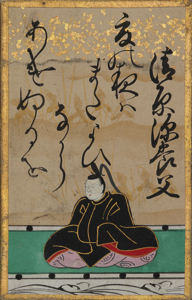 清原深養父
夏の夜は
まだよひ
ながら
あけぬるを